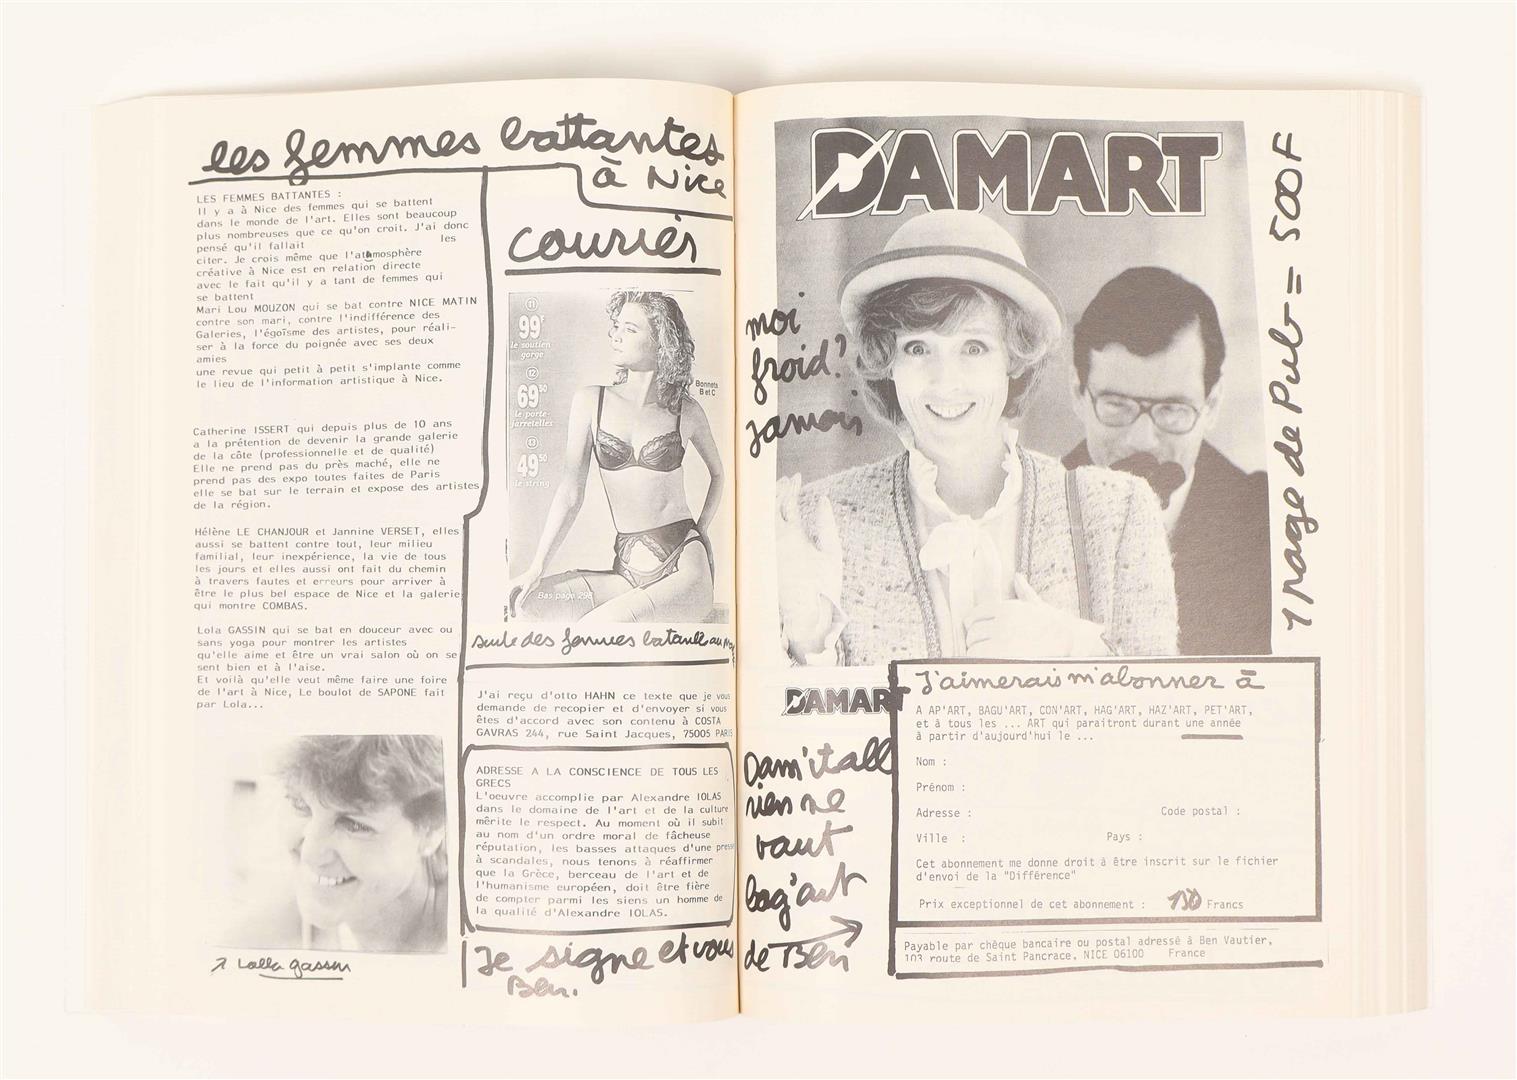 les femmes battantes
à Nice
LES FEMMES BATTANTES :
Il y a à Nice des femmes qui se battent
dans le monde de l'art. Elles sont beaucoup
plus nombreuses que ce qu'on croit. J'ai donc
pensé qu'il fallait les
citer. Je crois même que l'atmosphère
créative à Nice est en relation directe
avec le fait qu'il y a tant de femmes qui
se battent
Mari Lou MOUZON qui se bat contre NICE MATIN
contre son mari, contre l'indifférence des
Galeries, l'égoïsme des artistes, pour réali-
ser à la force du poignée avec ses deux
amies
une revue qui petit à petit s'implante comme
le lieu de l'information artistique à Nice.
Catherine ISSERT qui depuis plus de 10 ans
a la prétention de devenir la grande galerie
de la côte (professionnelle et de qualité)
Elle ne prend pas du près maché, elle ne
prend pas des expo toutes faites de Paris
elle se bat sur le terrain et expose des artistes
de la région.
Hélène LE CHANJOUR et Jannine VERSET, elles
aussi se battent contre tout, leur milieu
familial, leur inexpérience, la vie de tous
les jours et elles aussi ont fait du chemin
à travers fautes et erreurs pour arriver à
être le plus bel espace de Nice et la galerie
qui montre COMBAS.
Lola GASSIN qui se bat en douceur avec ou
sans yoga pour montrer les artistes
qu'elle aime et être un vrai salon où on se
sent bien et à l'aise.
Et voilà qu'elle veut même faire une foire
de l'art à Nice, Le boulot de SAPONE fait
par Lola...
↗ Lolla gassin
couriér
11
99F
le soutien
gorge
12
69,50
le porte-
jarretelles
13
49,50
le string
Bonnets
B et C
Bas page 298
seule des femmes batante au
J'ai reçu d'otto HAHN ce texte que je vous
demande de recopier et d'envoyer si vous
êtes d'accord avec son contenu à COSTA
GAVRAS 244, rue Saint Jacques, 75005 PARIS
ADRESSE A LA CONSCIENCE DE TOUS LES
GRECS
L'oeuvre accomplie par Alexandre IOLAS
dans le domaine de l'art et de la culture
mérite le respect. Au moment où il subit
au nom d'un ordre moral de fâcheuse
réputation, les basses attaques d'une presse
à scandales, nous tenons à réaffirmer
que la Grèce, berceau de l'art et de
l'humanisme européen, doit être fière
de compter parmi les siens un homme de
la qualité d'Alexandre IOLAS.
Je signe et vous
Ben.
DAMART
moi
froid?
jamais
1 page de Pub = 500F
DAMART
Dam'it all
rien ne
vaut
bag'art
de Ben
J'aimerais m'abonner à
A AP'ART, BAGU'ART, CON'ART, HAG'ART, HAZ'ART, PET'ART,
et à tous les ... ART qui paraitront durant une année
à partir d'aujourd'hui le ...
Nom :
Prénom :
Adresse : Code postal :
Ville : Pays :
Cet abonnement me donne droit à être inscrit sur le fichier
d'envoi de la "Différence"
Prix exceptionnel de cet abonnement : 150 Francs
Payable par chèque bancaire ou postal adressé à Ben Vautier,
103 route de Saint Pancrace, NICE 06100 France